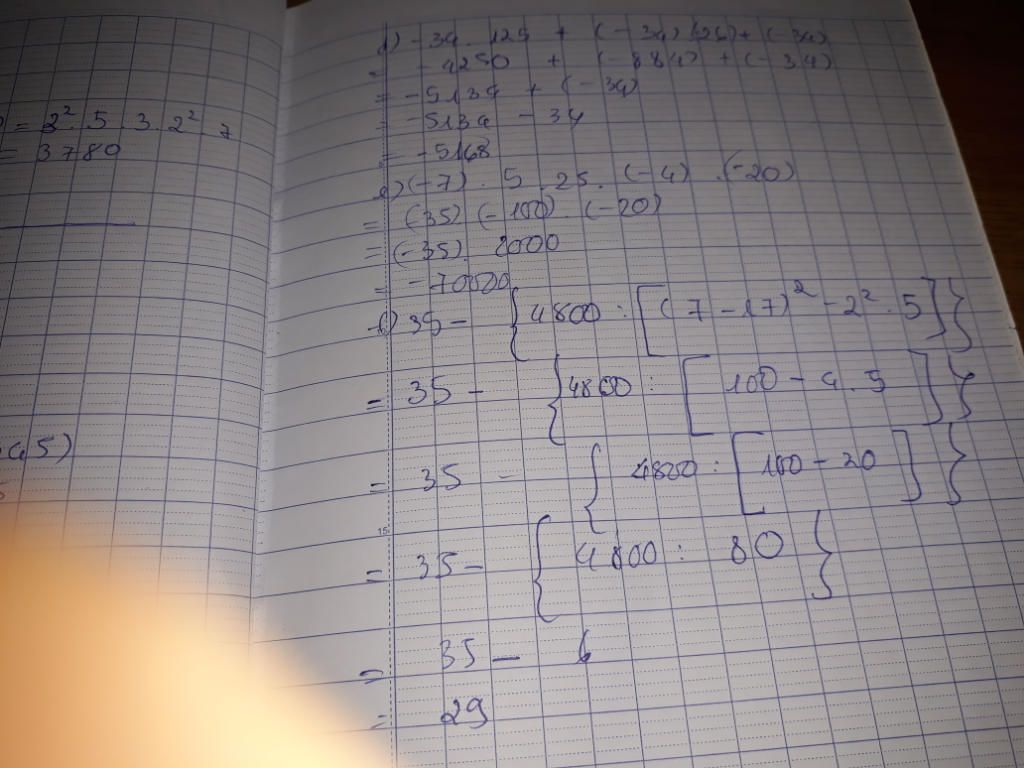 = 2². 5 . 3 . 2² . 7
= 3780
.5)
d) -34 . 125 + (-34) (26) + (-34)
= -4250 + (-884) + (-34)
= -5134 + (-34)
= -5134 - 34
= -5168
e) (-7) . 5 . 25 . (-4) . (-20)
= (35) (-100) . (-20)
= (-35) . 2000
= -70000
f) 35 - {4800 : [(7 - 17)² - 2² . 5]}
= 35 - {4800 : [100 - 4 . 5]}
= 35 - {4800 : [100 - 20]}
15
= 35 - {4800 : 80}
= 35 - 6
= 29